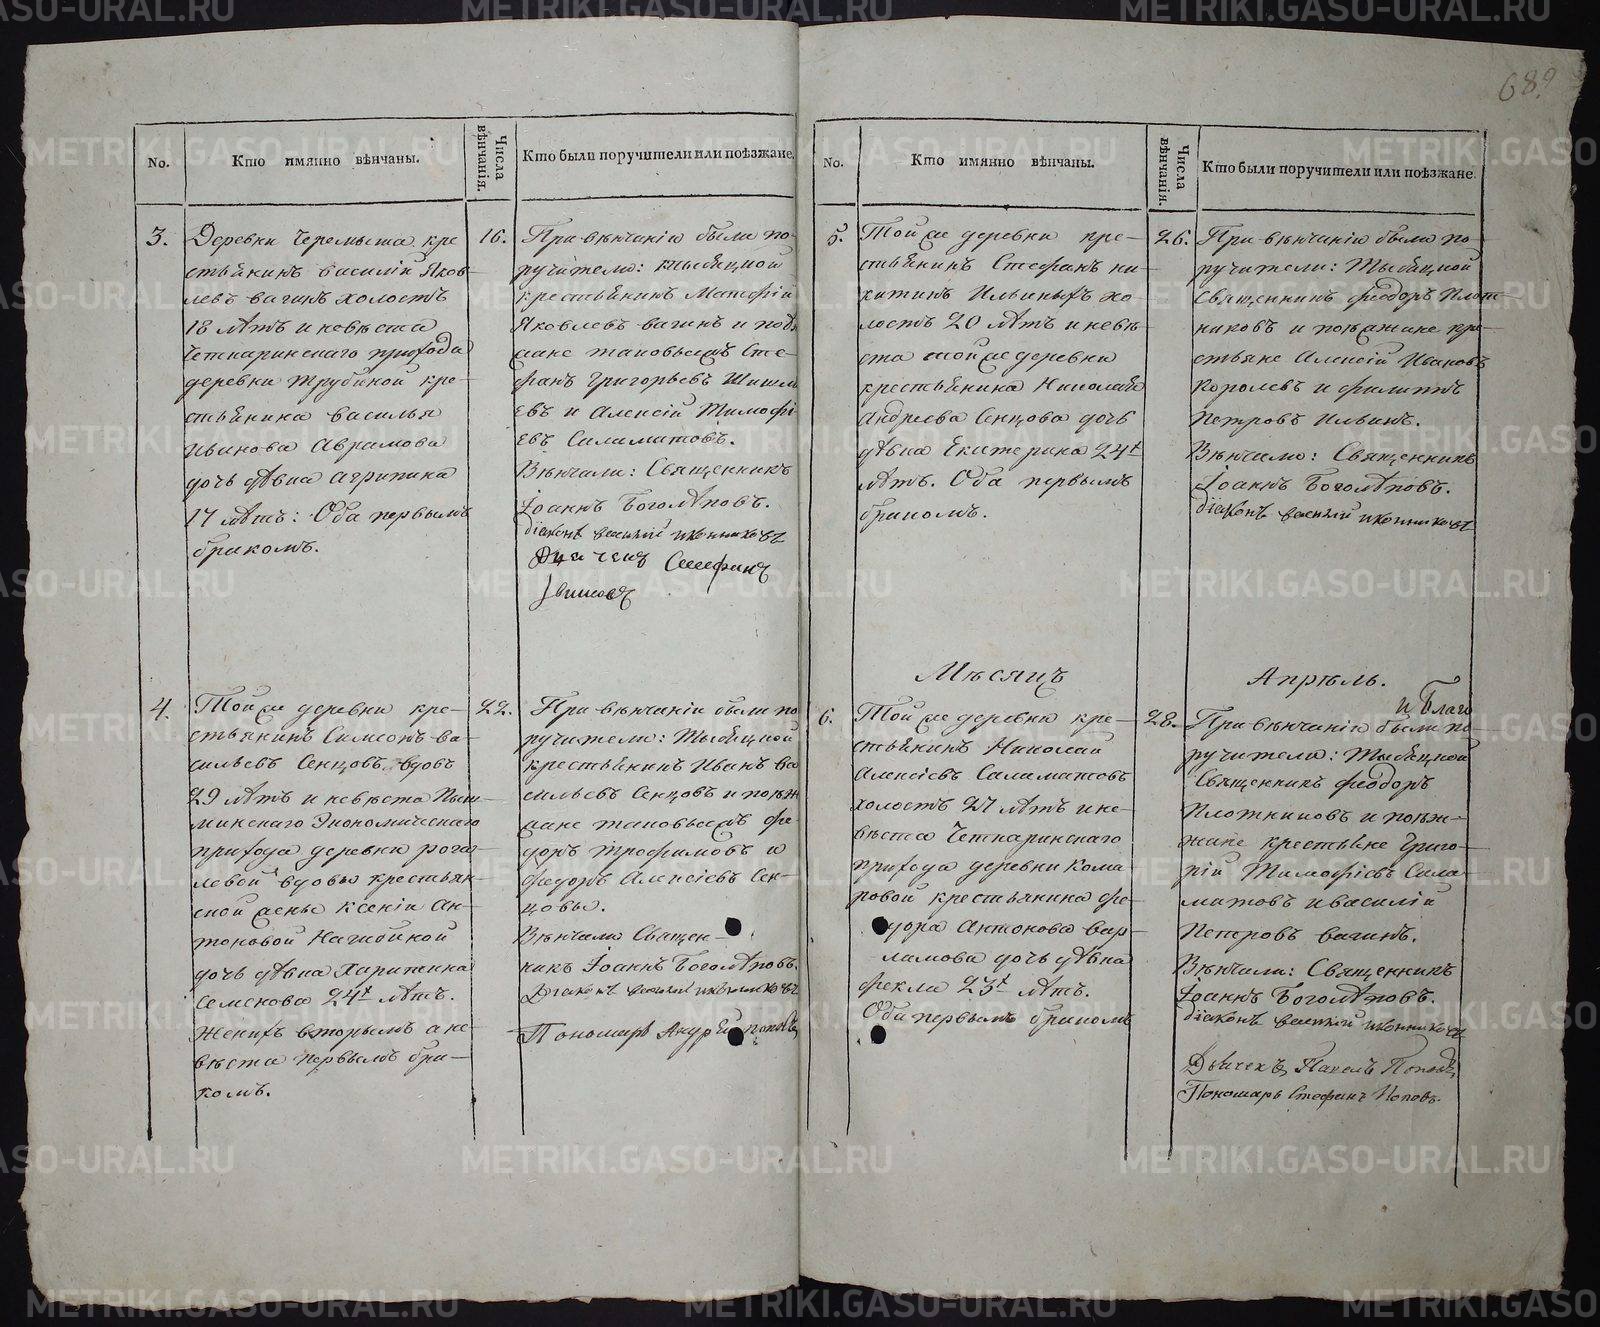 689
No.
Кто имянно вѣнчаны.
Числа вѣнчанія.
Кто были поручители или поѣзжане.
3.
Деревни Черемыша кре
стьянинъ Василій Яков
левъ Вагинъ холостъ
18 лѣтъ и невѣста
Четкаринскаго прихода
деревни Трубиной кре-
стьянина Василья
Иванова Аврамова
дочь дѣвка Агрипина
17 лѣтъ: Оба первымъ
бракомъ.
16.
При вѣнчаніи были по-
ручители:
крестьянинъ Матфій
Яковлевъ Вагинъ и
таковыежъ Сте-
фанъ Григорьевъ
евъ и Алексій Тимофі
евъ Саламатовъ.
Вѣнчали: Священникъ
Іоаннъ Боголѣповъ.
діаконъ Василій Иконниковъ
Дьячекъ Стефанъ
4.
Той же деревни кре-
стьянинъ Симеонъ Ва-
сильевъ Сенцовъ вдовъ
29 лѣтъ и невѣста Пыш-
минскаго Экономическаго
прихода деревни Рога-
левой вдовы крестьян-
ской жены Ксеніи Ан-
тоновой
дочь дѣвка Харитина
Семенова 24х лѣтъ.
Женихъ вторымъ а не-
вѣста первымъ бра-
комъ.
22.
При вѣнчаніи были по
ручители:
крестьянинъ Иванъ Ва
сильевъ Сенцовъ и поѣз
жане таковыежъ Фе-
доръ Трофимовъ и
Федоръ Алексіевъ Сен-
цовы.
Вѣнчали Священ-
никъ Іоаннъ Боголѣповъ.
Діаконъ Василій Иконниковъ
Пономарь Андрей Поповъ
No.
Кто имянно вѣнчаны.
Числа вѣнчанія.
Кто были поручители или поѣзжане.
5.
Той же деревни кре-
стьянинъ Стефанъ Ни-
китинъ Ильиныхъ хо-
лостъ 20 лѣтъ и невѣ-
ста той же деревни
крестьянина Николая
Андреева Сенцова дочь
дѣвка Екатерина 24х
лѣтъ. Оба первымъ
бракомъ.
26.
При вѣнчаніи были по-
ручители:
Священникъ Феодоръ Плот-
никовъ и поѣзжане кре-
стьяне Алексій Ивановъ
Королевъ и Филиппъ
Петровъ Ильинъ.
Вѣнчали: Священникъ
Іоаннъ Боголѣповъ.
діаконъ Василій Иконниковъ
Мѣсяцъ
Апрѣль.
6.
Той же деревни кре-
стьянинъ Николай
Алексіевъ Саламатовъ
холостъ 27 лѣтъ и не-
вѣста Четкаринскаго
прихода деревни Кома
ровой крестьянина Фе-
дора Антонова Вар-
ламова дочь дѣвка
Фекла 23х лѣтъ.
Оба первымъ бракомъ
28.
и Благо
При вѣнчаніи были по-
ручители:
Священникъ Феодоръ
Плотниковъ и поѣз-
жане крестьяне Григо-
рій Тимофіевъ Сала-
матовъ и Василій
Петровъ Вагинъ.
Вѣнчали: Священникъ
Іоаннъ Боголѣповъ.
діаконъ Василій Иконниковъ
Дьячекъ Павелъ Поповъ
Пономарь Стефанъ Поповъ.
METRIKI.GASO-URAL.RU